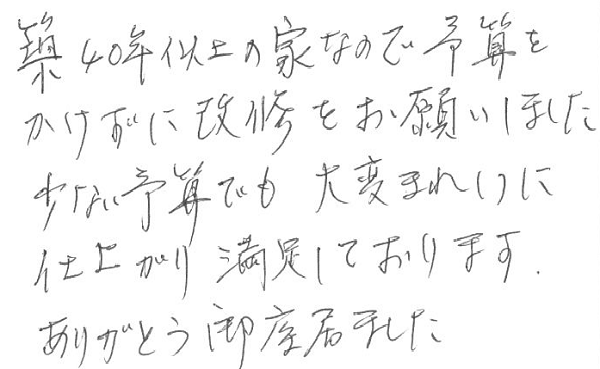 築40年以上の家なので予算を
かけずに改修をお願いしました
少ない予算でも大変きれいに
仕上がり満足しております.
ありがとう御座居ました